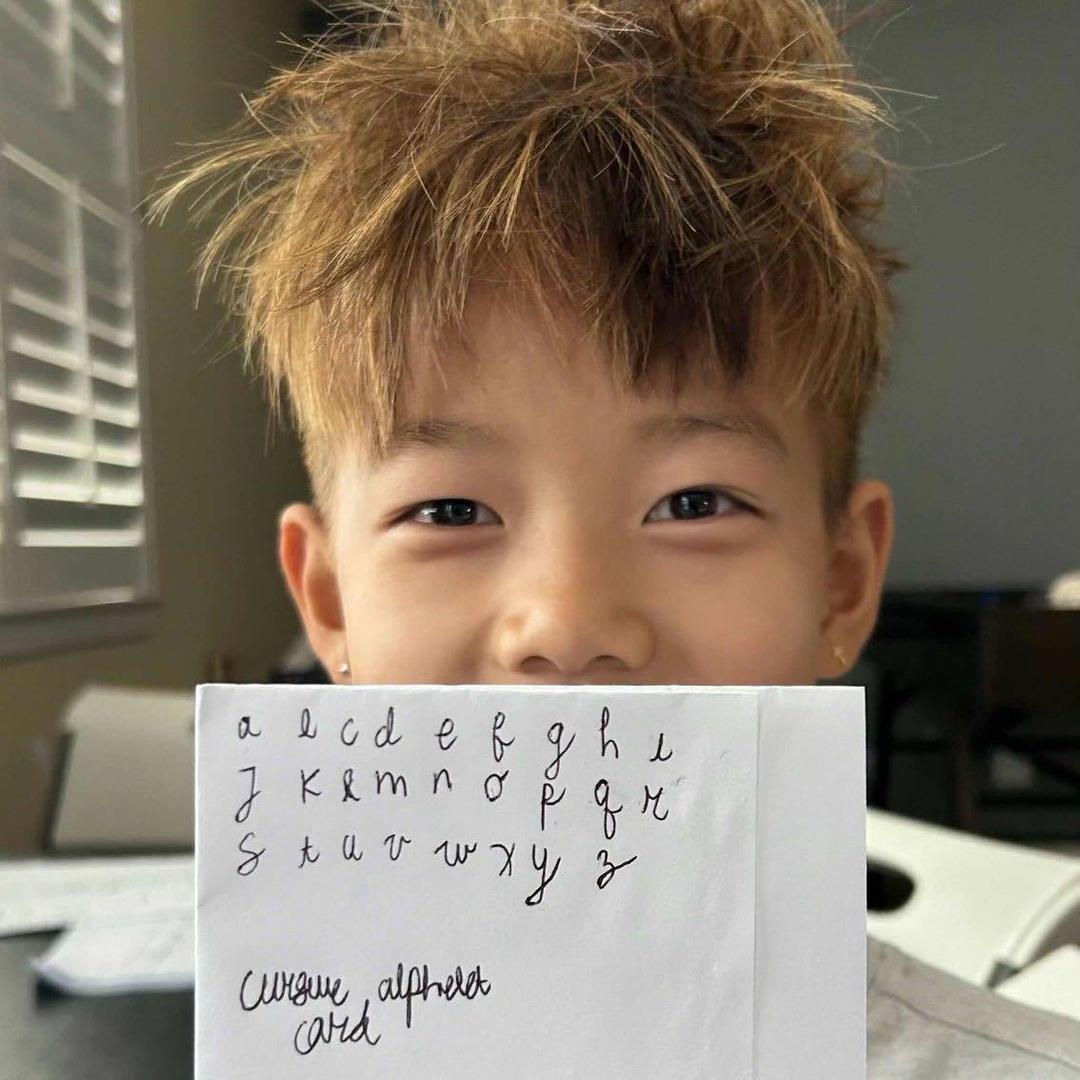 a b c d e f g h i
j k l m n o p q r
s t u v w x y z
cursive alphabet
card